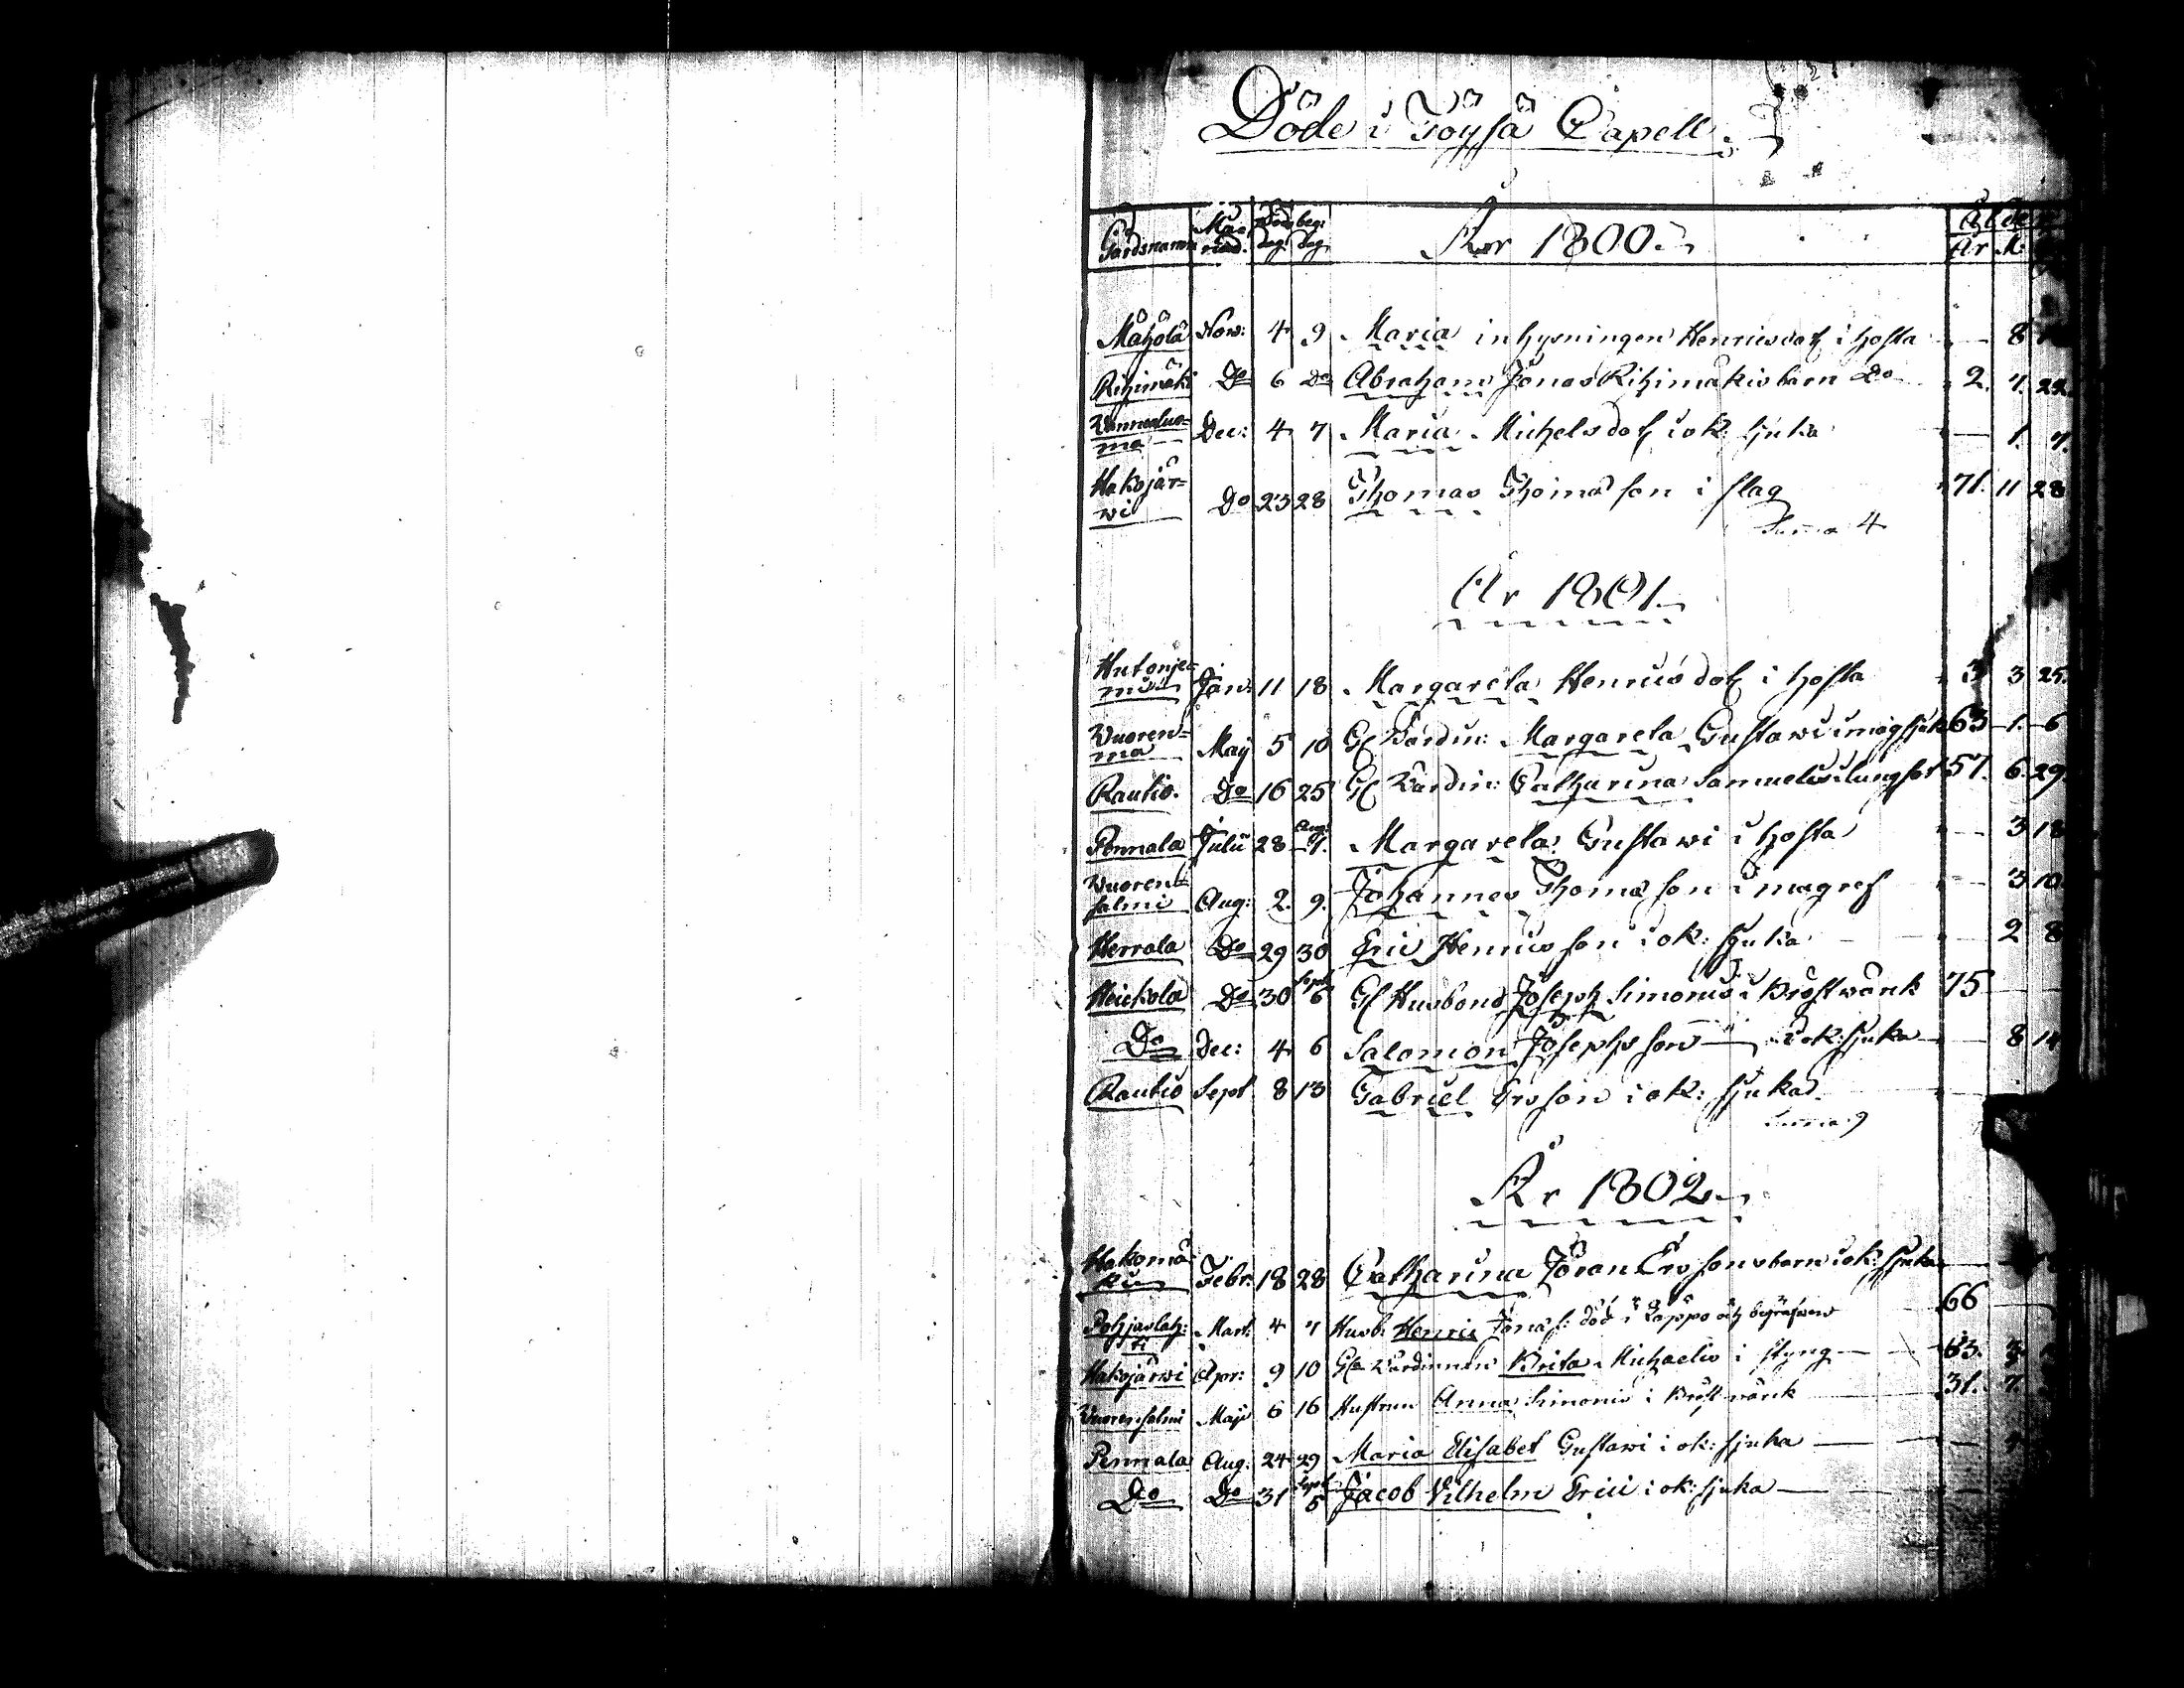 Döde i Töysä Capell.
Gårdsnamn Månad. Död. dag. beg: dag. Åhr 1800. Ålder År M.
Mähölä Nov: 4 9 Maria inhysningen Henricsdotr i hosta 8
Rihimäki Do 6 Do Abraham Jonas Rihimäkis barn Do 2. 7. 22.
ma Dec: 4 7 Maria Michelsdotr i ok: sjuka 1. 7.
Hakojär=
wi Do 23 28 Thomas Thomæson i slag 71. 11 28
Summa 4
År 1801.
Jan: 11 18 Margareta Henricsdotr i hosta 3 3 25.
Vuoren=
ma Maij 5 10 Gl Värdin: Margareta Gustawi i magsjuk 63 1. 6
Rautio. Do 16 25 Gl Värdin: Catharina Samuelis i lungsot 57. 6. 29.
Pennala Julii 28 Aug: 1. Margareta Gustawi i hosta 3 18
Vuoren=
salmi Aug: 2. 9. Johannes Thomæson i magref 3 10.
Herrala Do 29 30 Eric Henricsson i ok: sjuka 2 8
Heickola Do 30 Sept 6 Gl Husbond Joseph Simonis i Bröstvärk 75
Do Dec: 4 6 Salomon Josephsson i ok: sjuka 8 14
Rautio Sept 8 13 Gabriel Ersson i ok: sjuka
Summa 9
År 1802
Hakomä=
ki Febr: 18 28 Catharina Jöran Erssons barn i ok: sjuka
Pohjaslah:
ti Mart: 4 7 Husb: Henric Jonæ s: död i Lappo och begrafwen 66
Hakojärwi Apr: 9 10 Gl Värdinnan Brita Michaelis i styng 63. 3.
Vuorensalmi Maji 6 16 Hustrun Anna Simonis i Bröstvärk 31. 7.
Pennala Aug. 24 29 Maria Elisabet Gustawi i ok: sjuka
Do Do 31 Sept 5 Jacob Vilhelm Erici i ok: sjuka